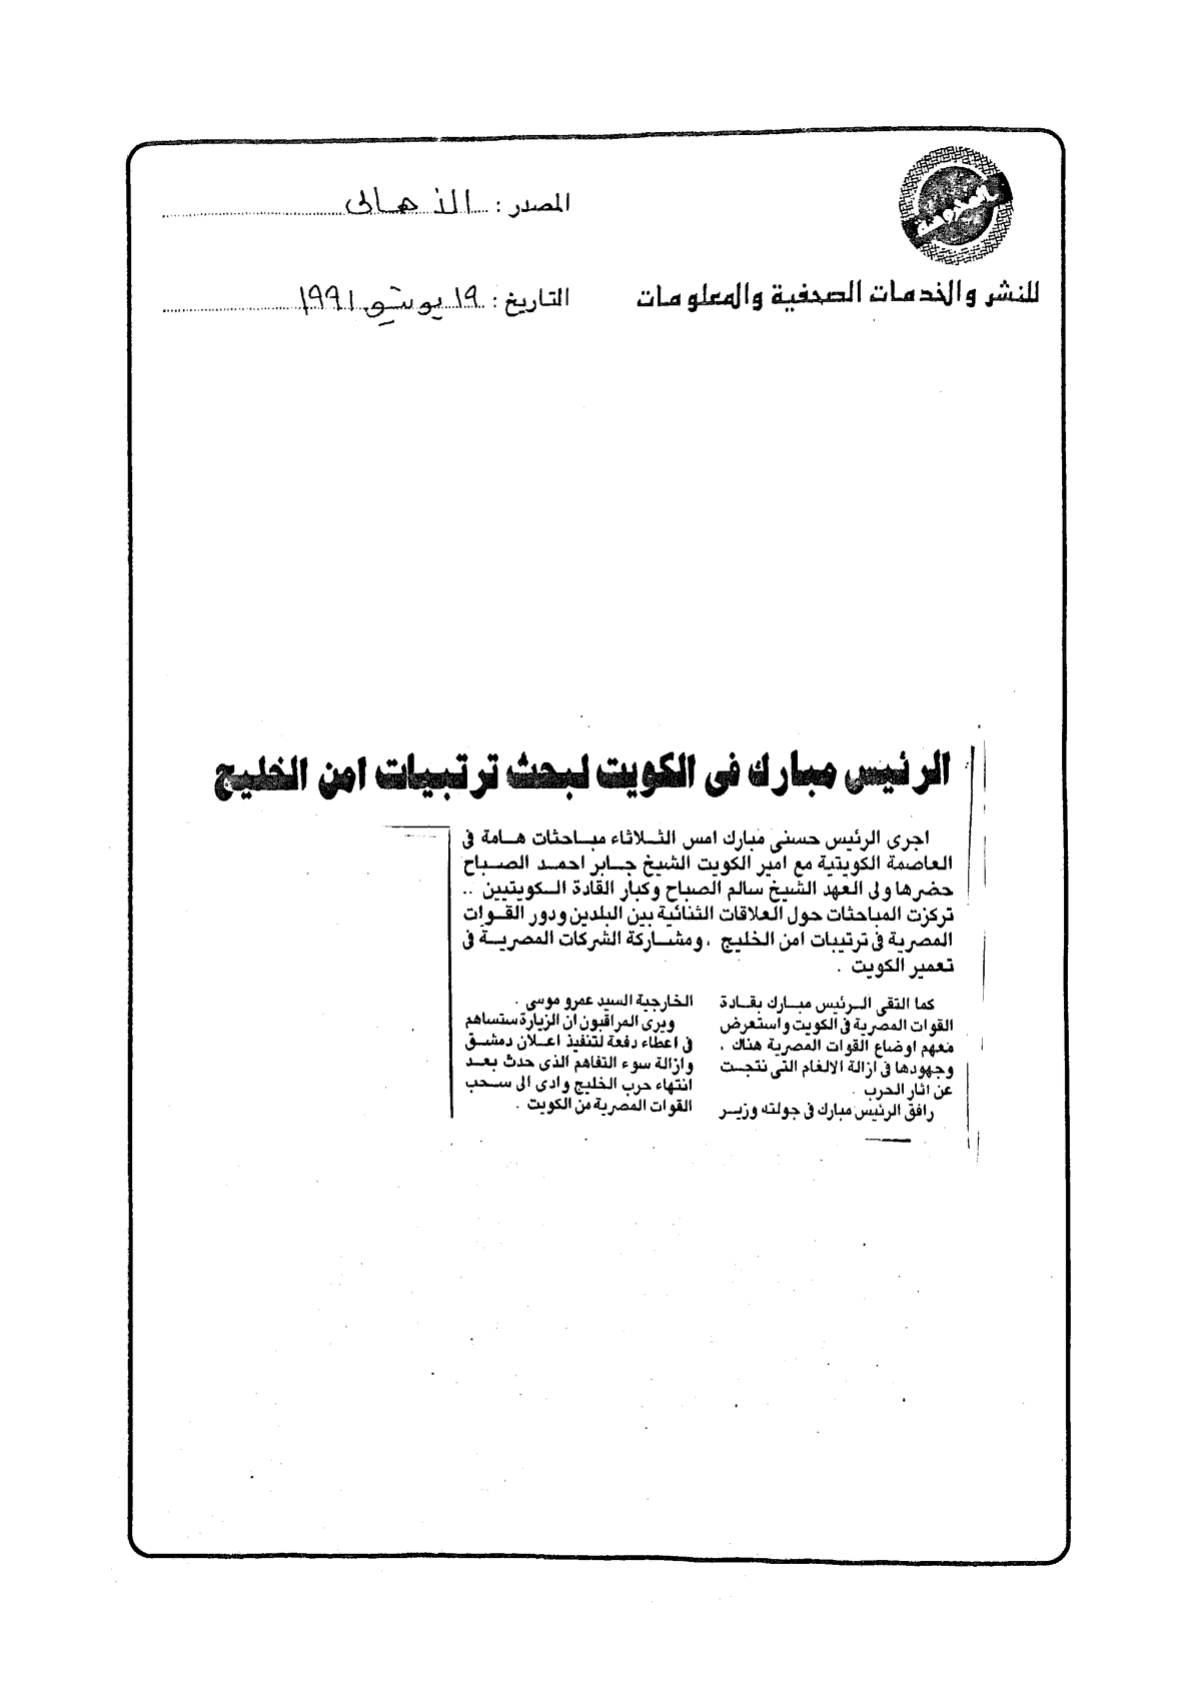 المصدر :
التاريخ : ١٩ يونيو ١٩٩١
للنشر والخدمات الصحفية والمعلومات
الرئيس مبارك فى الكويت لبحث ترتيبات امن الخليج
اجرى الرئيس حسنى مبارك امس الثلاثاء مباحثات هامة فى
العاصمة الكويتية مع امير الكويت الشيخ جابر احمد الصباح
حضرها ولى العهد الشيخ سالم الصباح وكبار القادة الكويتيين ..
تركزت المباحثات حول العلاقات الثنائية بين البلدين ودور القوات
المصرية فى ترتيبات امن الخليج ، ومشاركة الشركات المصرية فى
تعمير الكويت .
كما التقى الرئيس مبارك بقادة
القوات المصرية فى الكويت واستعرض
معهم اوضاع القوات المصرية هناك ،
وجهودها فى ازالة الالغام التى نتجت
عن اثار الحرب .
رافق الرئيس مبارك فى جولته وزير
الخارجية السيد عمرو موسى .
ويرى المراقبون ان الزيارة ستساهم
فى اعطاء دفعة لتنفيذ اعلان دمشق
وازالة سوء التفاهم الذى حدث بعد
انتهاء حرب الخليج وادى الى سحب
القوات المصرية من الكويت .